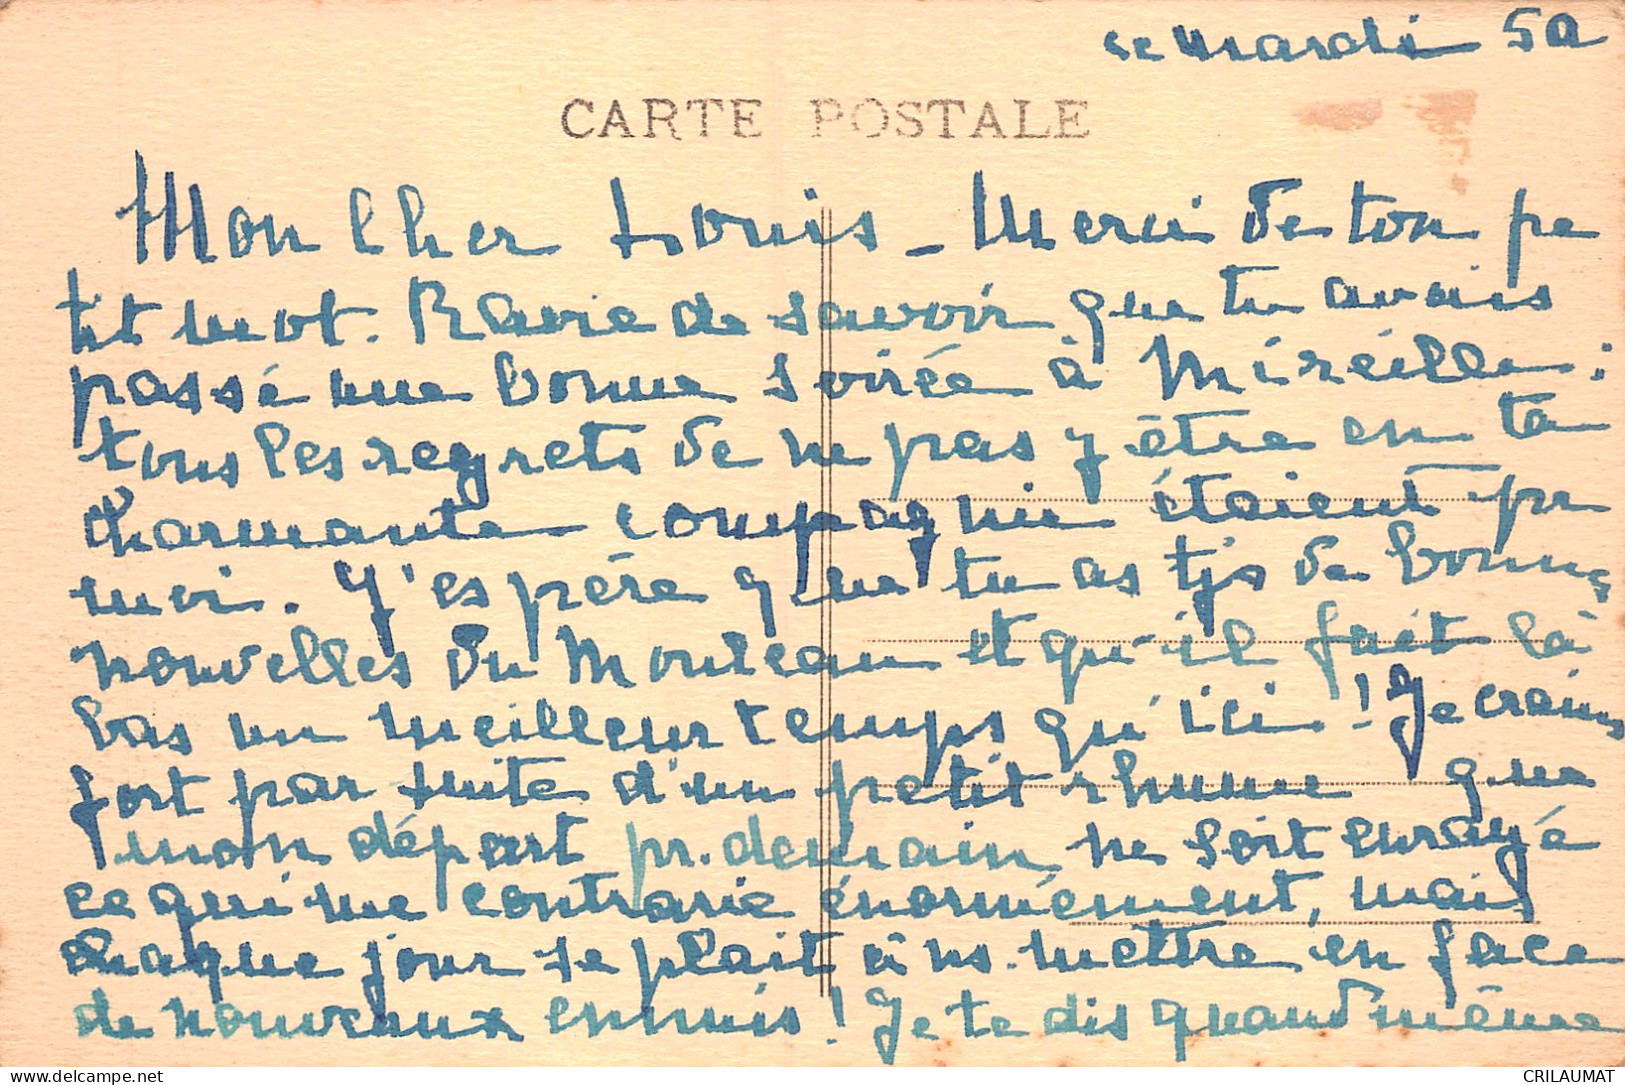 ce mardi 5a
CARTE POSTALE
Mon Cher Louis - Merci de ton pe
tit mot. Ravie de savoir que tu avais
passé une bonne soirée à Mireille :
tous les regrets de ne pas y être en ta
charmante compagnie étaient pr
moi. J'espère que tu as tjs de bonnes
nouvelles du Mouleau et qu'il fait là
bas un meilleur temps qu'ici ! Je crains
fort par suite d'un petit rhume que
mon départ pr. demain ne soit enrayé
ce qui me contrarie énormément, mais
chaque jour se plait à ns. mettre en face
de nouveaux ennuis ! Je te dis quand même
delcampe.net
CRILAUMAT